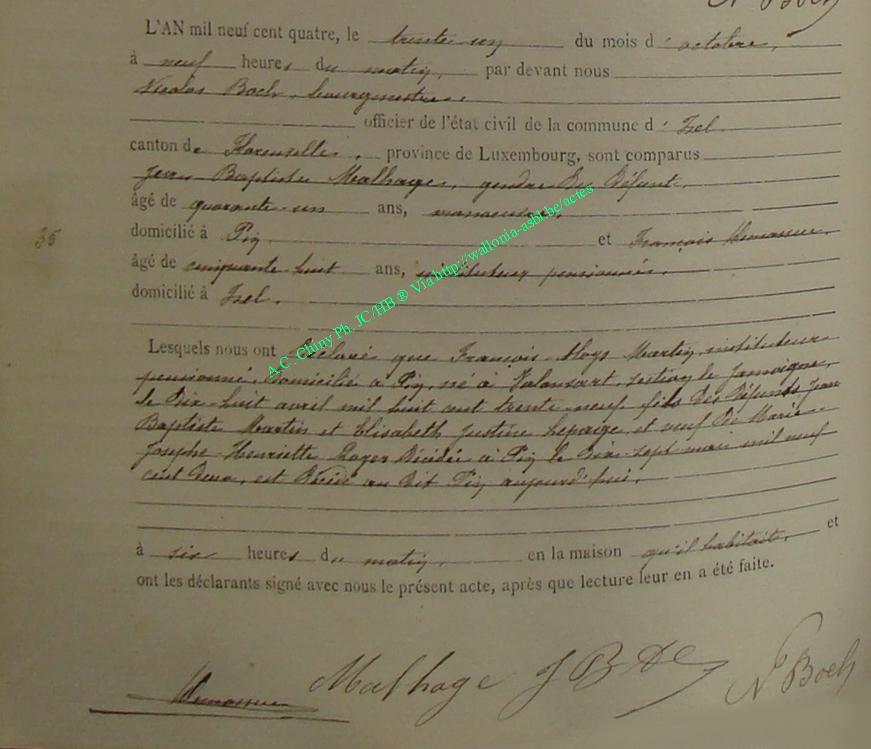 N Boch
L'AN mil neuf cent quatre, le trente un du mois d'octobre,
à neuf heures du matin, par devant nous
Nicolas Boch, bourgmestre,
officier de l'état civil de la commune d'Izel
canton de Florenville, province de Luxembourg, sont comparus
Jean Baptiste Malhage, gendre du défunt,
âgé de quarante-un ans, manoeuvre,
domicilié à Pin et François
35
âgé de cinquante huit ans, instituteur pensionné,
domicilié à Izel,
Lesquels nous ont déclaré que François Aloys Martin, instituteur
pensionné, domicilié à Pin, né à Valansart, section de Jamoigne,
le dix-huit avril mil huit cent trente-neuf, fils des défunts Jean
Baptiste Martin et Elisabeth Justine Lepaige, et veuf de Marie
Josephe Henriette décédée à Pin le dix-sept mars mil neuf
cent deux, est décédé au dit Pin aujourd'hui,
à six heures du matin, en la maison qu'il habitait, et
ont les déclarants signé avec nous le présent acte, après que lecture leur en a été faite.
Malhage J B N Boch
A.C. Chiny Ph. JC/HB ® Via http://wallonia-asbl.be/actes